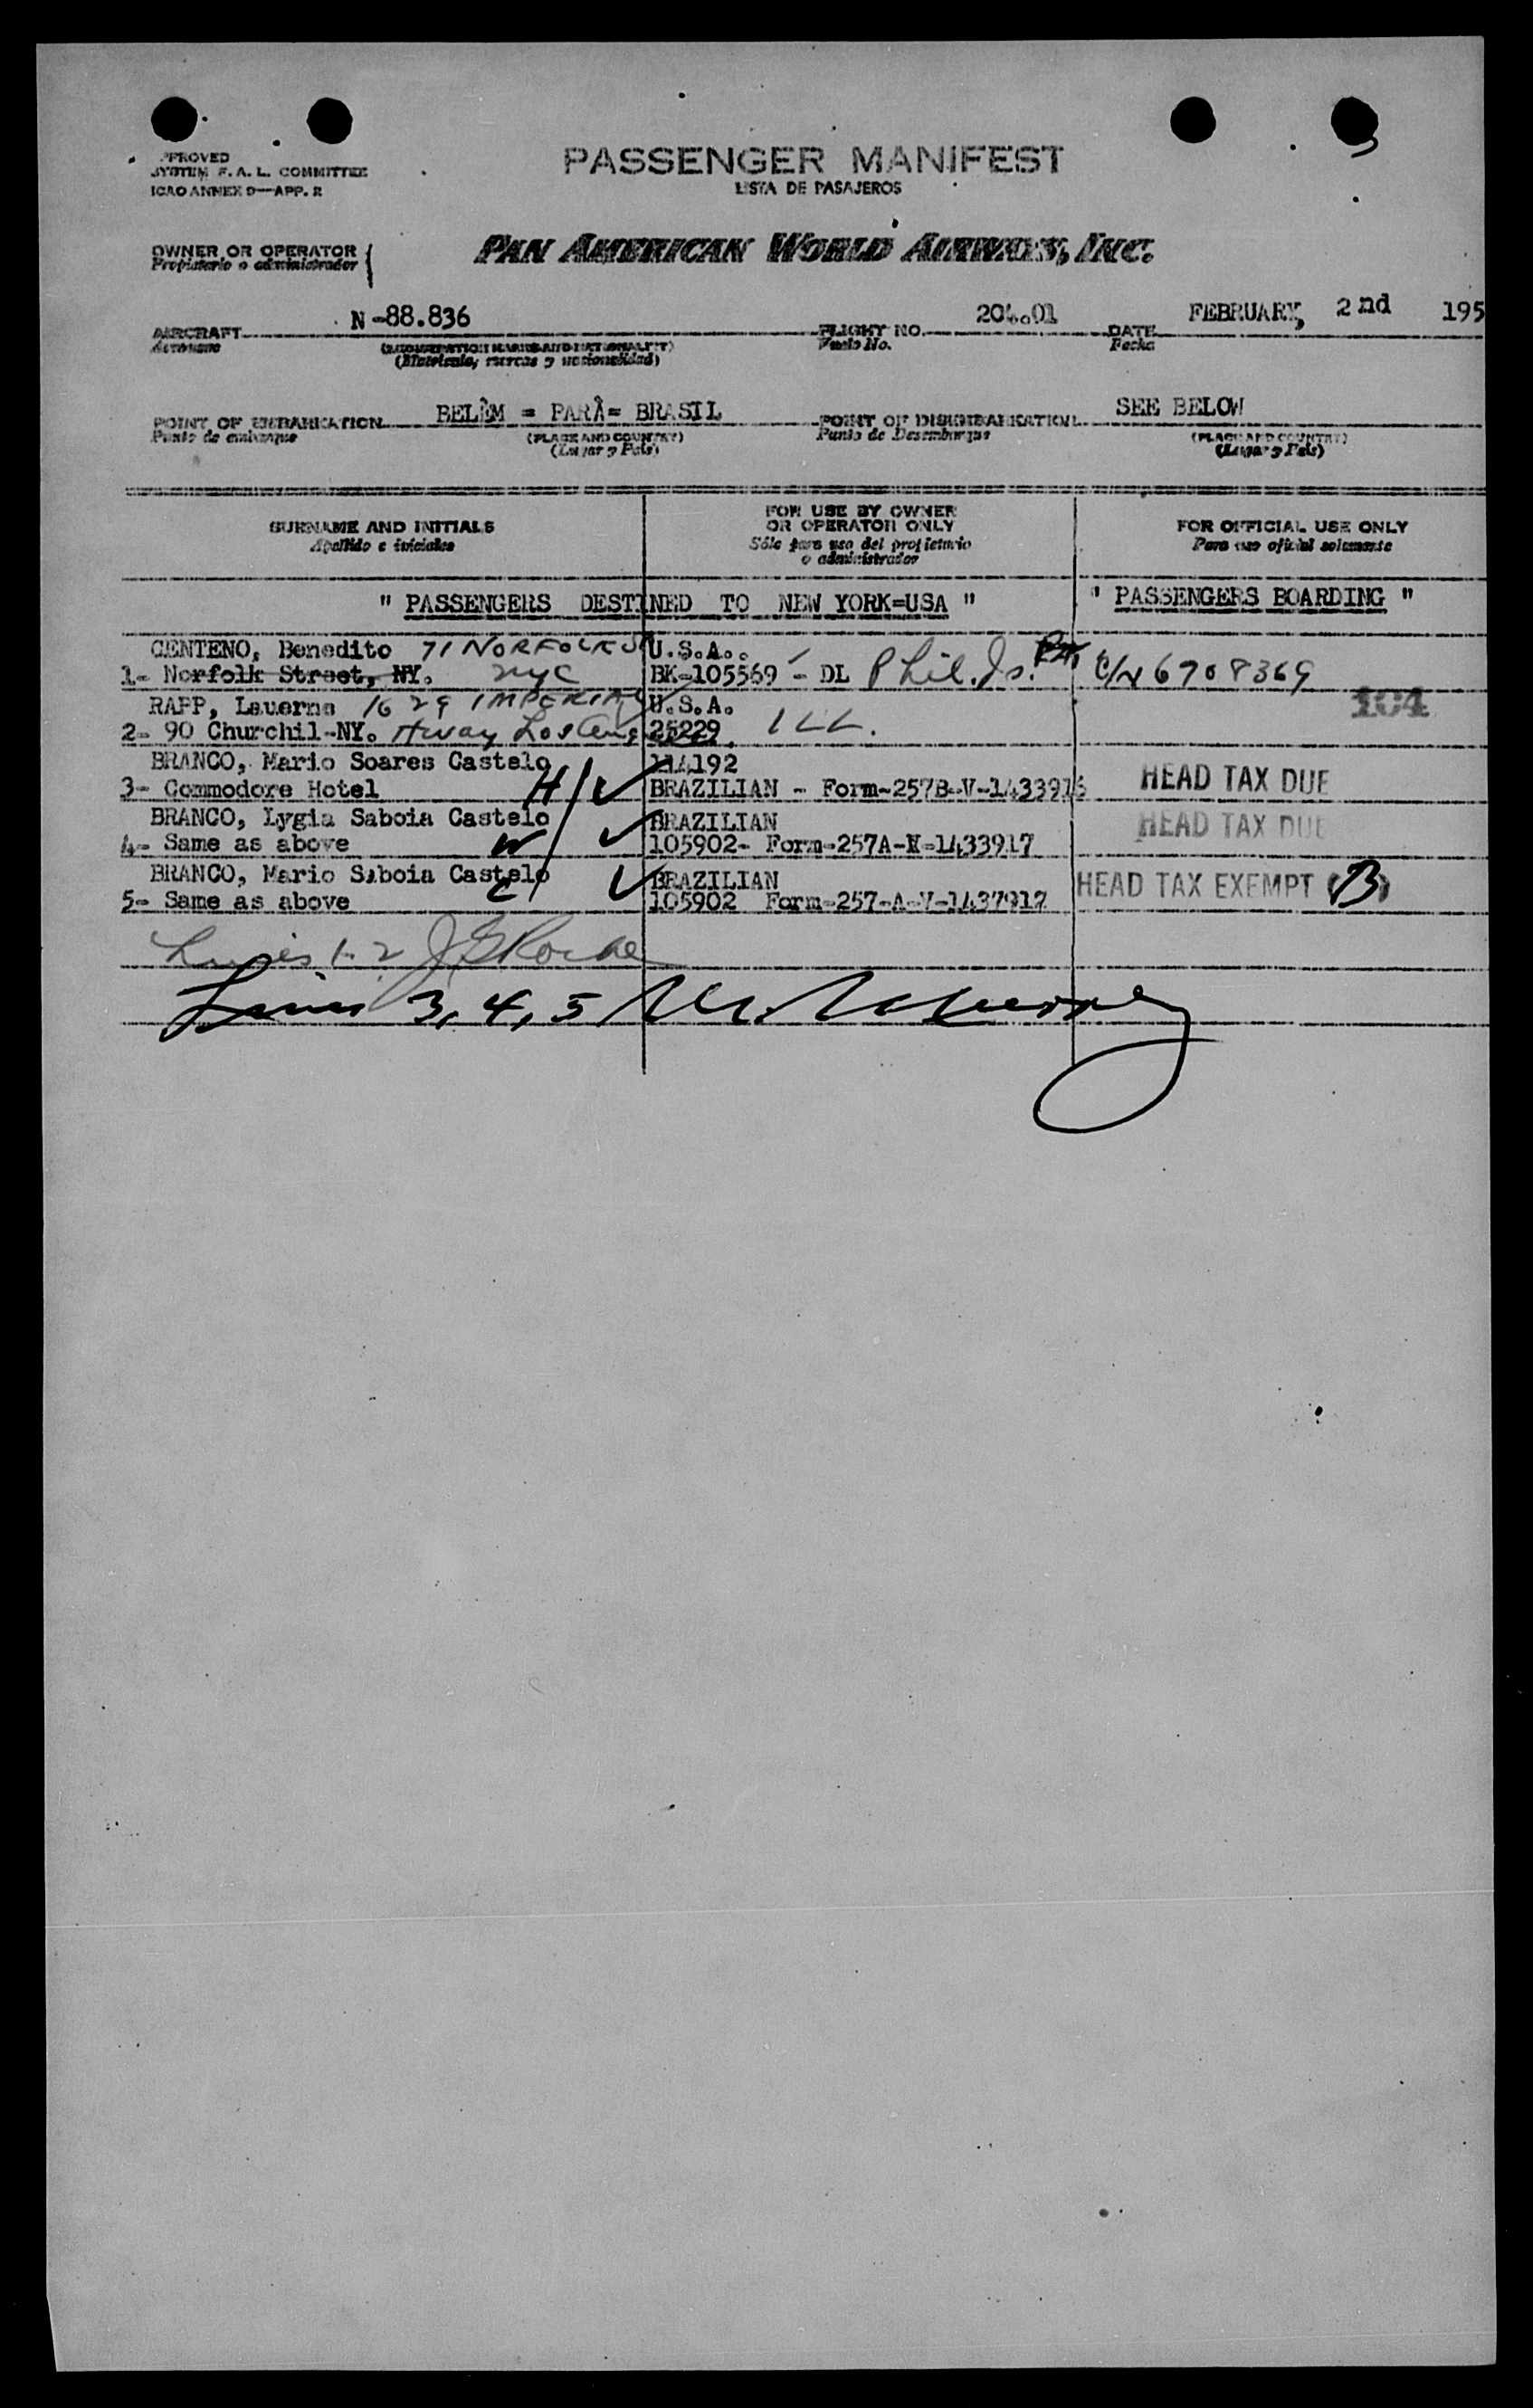 PASSENGER MANIFEST
LISTA DE PASAJEROS
APPROVED
SYSTEM F. A. L. COMMITTEE
ICAO ANNEX 9—APP. 2
OWNER OR OPERATOR
Propietario o administrador
PAN AMERICAN WORLD AIRWAYS, INC.
AIRCRAFT N-88.836 FLIGHT NO. 204.01 DATE FEBRUARY, 2nd 195
Aeronave Vuelo No. Fecha
(REGISTRATION MARKS AND NATIONALITY)
(Matrícula, marcas y nacionalidad)
POINT OF EMBARKATION BELÊM = PARÂ= BRASIL POINT OF DISEMBARKATION SEE BELOW
Punto de embarque (PLACE AND COUNTRY) Punto de Desembarque (PLACE AND COUNTRY)
(Lugar y País) (Lugar y País)
SURNAME AND INITIALS
Apellido e iniciales
FOR USE BY OWNER
OR OPERATOR ONLY
Sólo para uso del propietario
o administrador
FOR OFFICIAL USE ONLY
Para uso oficial solamente
" PASSENGERS DESTINED TO NEW YORK=USA " " PASSENGERS BOARDING "
CENTENO, Benedito 71 NORFOLK S U.S.A..
1- Norfolk Street, NY. NYC BK-105569 - DL Phil. Is. C/N 6708369
RAPP, Lauerna 1629 IMPERIAL U.S.A. 104
2- 90 Churchil-NY. Hway Los Ang 25229 ILL.
BRANCO, Mario Soares Castelo 114192
3- Commodore Hotel H BRAZILIAN - Form-257B-V-1433916 HEAD TAX DUE
BRANCO, Lygia Saboia Castelo BRAZILIAN HEAD TAX DUE
4- Same as above W 105902- Form-257A-V-1433917
BRANCO, Mario Saboia Castelo BRAZILIAN HEAD TAX EXEMPT (B)
5- Same as above C 105902 Form-257-A-V-1437917
Lines 1-2
Lines 3, 4, 5